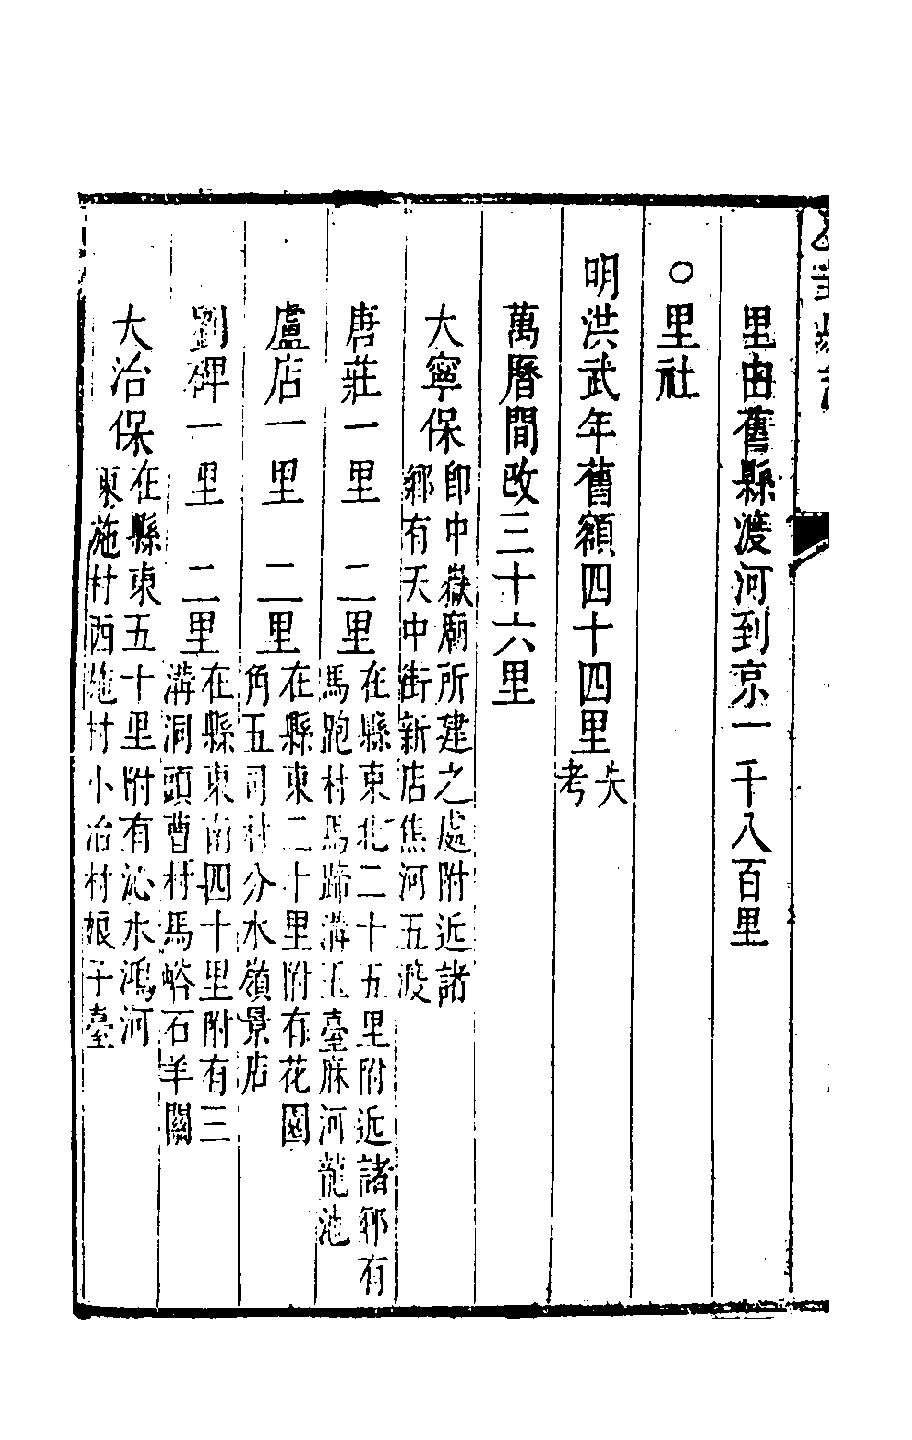 里由舊縣渡河到京一千八百里
○里社
明洪武年舊額四十四里失
考
萬曆間改三十六里
大寧保即中嶽廟所建之處附近諸
鄉有天中街新店焦河五渡
唐莊一里　二里在縣東北二十五里附近諸鄉有
馬跑村馬蹄溝玉臺麻河龍池
盧店一里　二里在縣東二十里附有花園
角五司村分水嶺景店
劉碑一里　二里在縣東南四十里附有三
溝洞頭曹村馬峪石羊關
大冶保在縣東五十里附有沁水鴻河
東施村西施村小冶村娘子臺